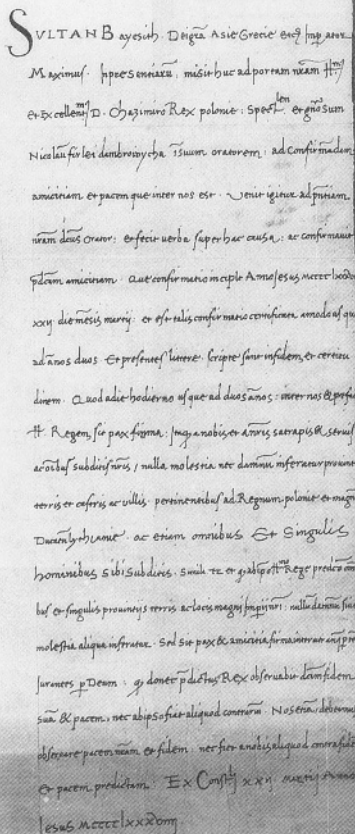 SVLTAN Bayesith. Dei gr̃a Asie Grecie etc̃ Imp̃ator
Maximus. In p̃resentiarũ, misit huc ad portam nr̃am
et Excellenm̃ D. Chazimiro Rex polonie: Spect. et gñosum
Nicolaũ firlei dambrowycha suum oratorem: ad confirmãdam
amicitiam et pacem que inter nos est. Venit igitur ad p̃ntiam
nr̃am dc̃us orator: et fecit verba super hac causa: ac confirmauit
p̃dc̃am amicitiam. Que confirmatio incipit Anno Jesus
xxij die mẽsis martij: et est talis confirmatio certificata amodo usq
ad ãnos duos. Et presentes littere. scripte sunt in fidem, et certitu
dinem. Quod a die hodierno usque ad duos ãnos: inter nos & prefa
Regem, sit pax firma: a nobis et a nr̃is satrapis & seruis
ac oĩbus subditis nr̃is, nulla molestia nec damnũ inferatur prouint
terris et castris ac villis. pertinentibus ad Regnum polonie et magnũ
Ducatũ lythuanie. ac etiam omnibus Et Singulis
hominibus sibi subditis. Rege predc̃o om̃
bus et singulis prouintijs terris ac locis magni Imperij nr̃i: nullũ damnũ siue
molestia aliqua inferatur. Sed sit pax & amicitia firma inter
iurantes p̃ Deum: q donec p̃dictus Rex obseruabit dc̃am fidem
suã & pacem, nec ab ipso fiat aliquod contrariũ. Nos etiã, debemus
obseruare pacem nr̃am et fidem: nec fiet a nobis aliquod contra fidẽ
et pacem predictam. Ex Const. xxij. martij Anno
Iesus